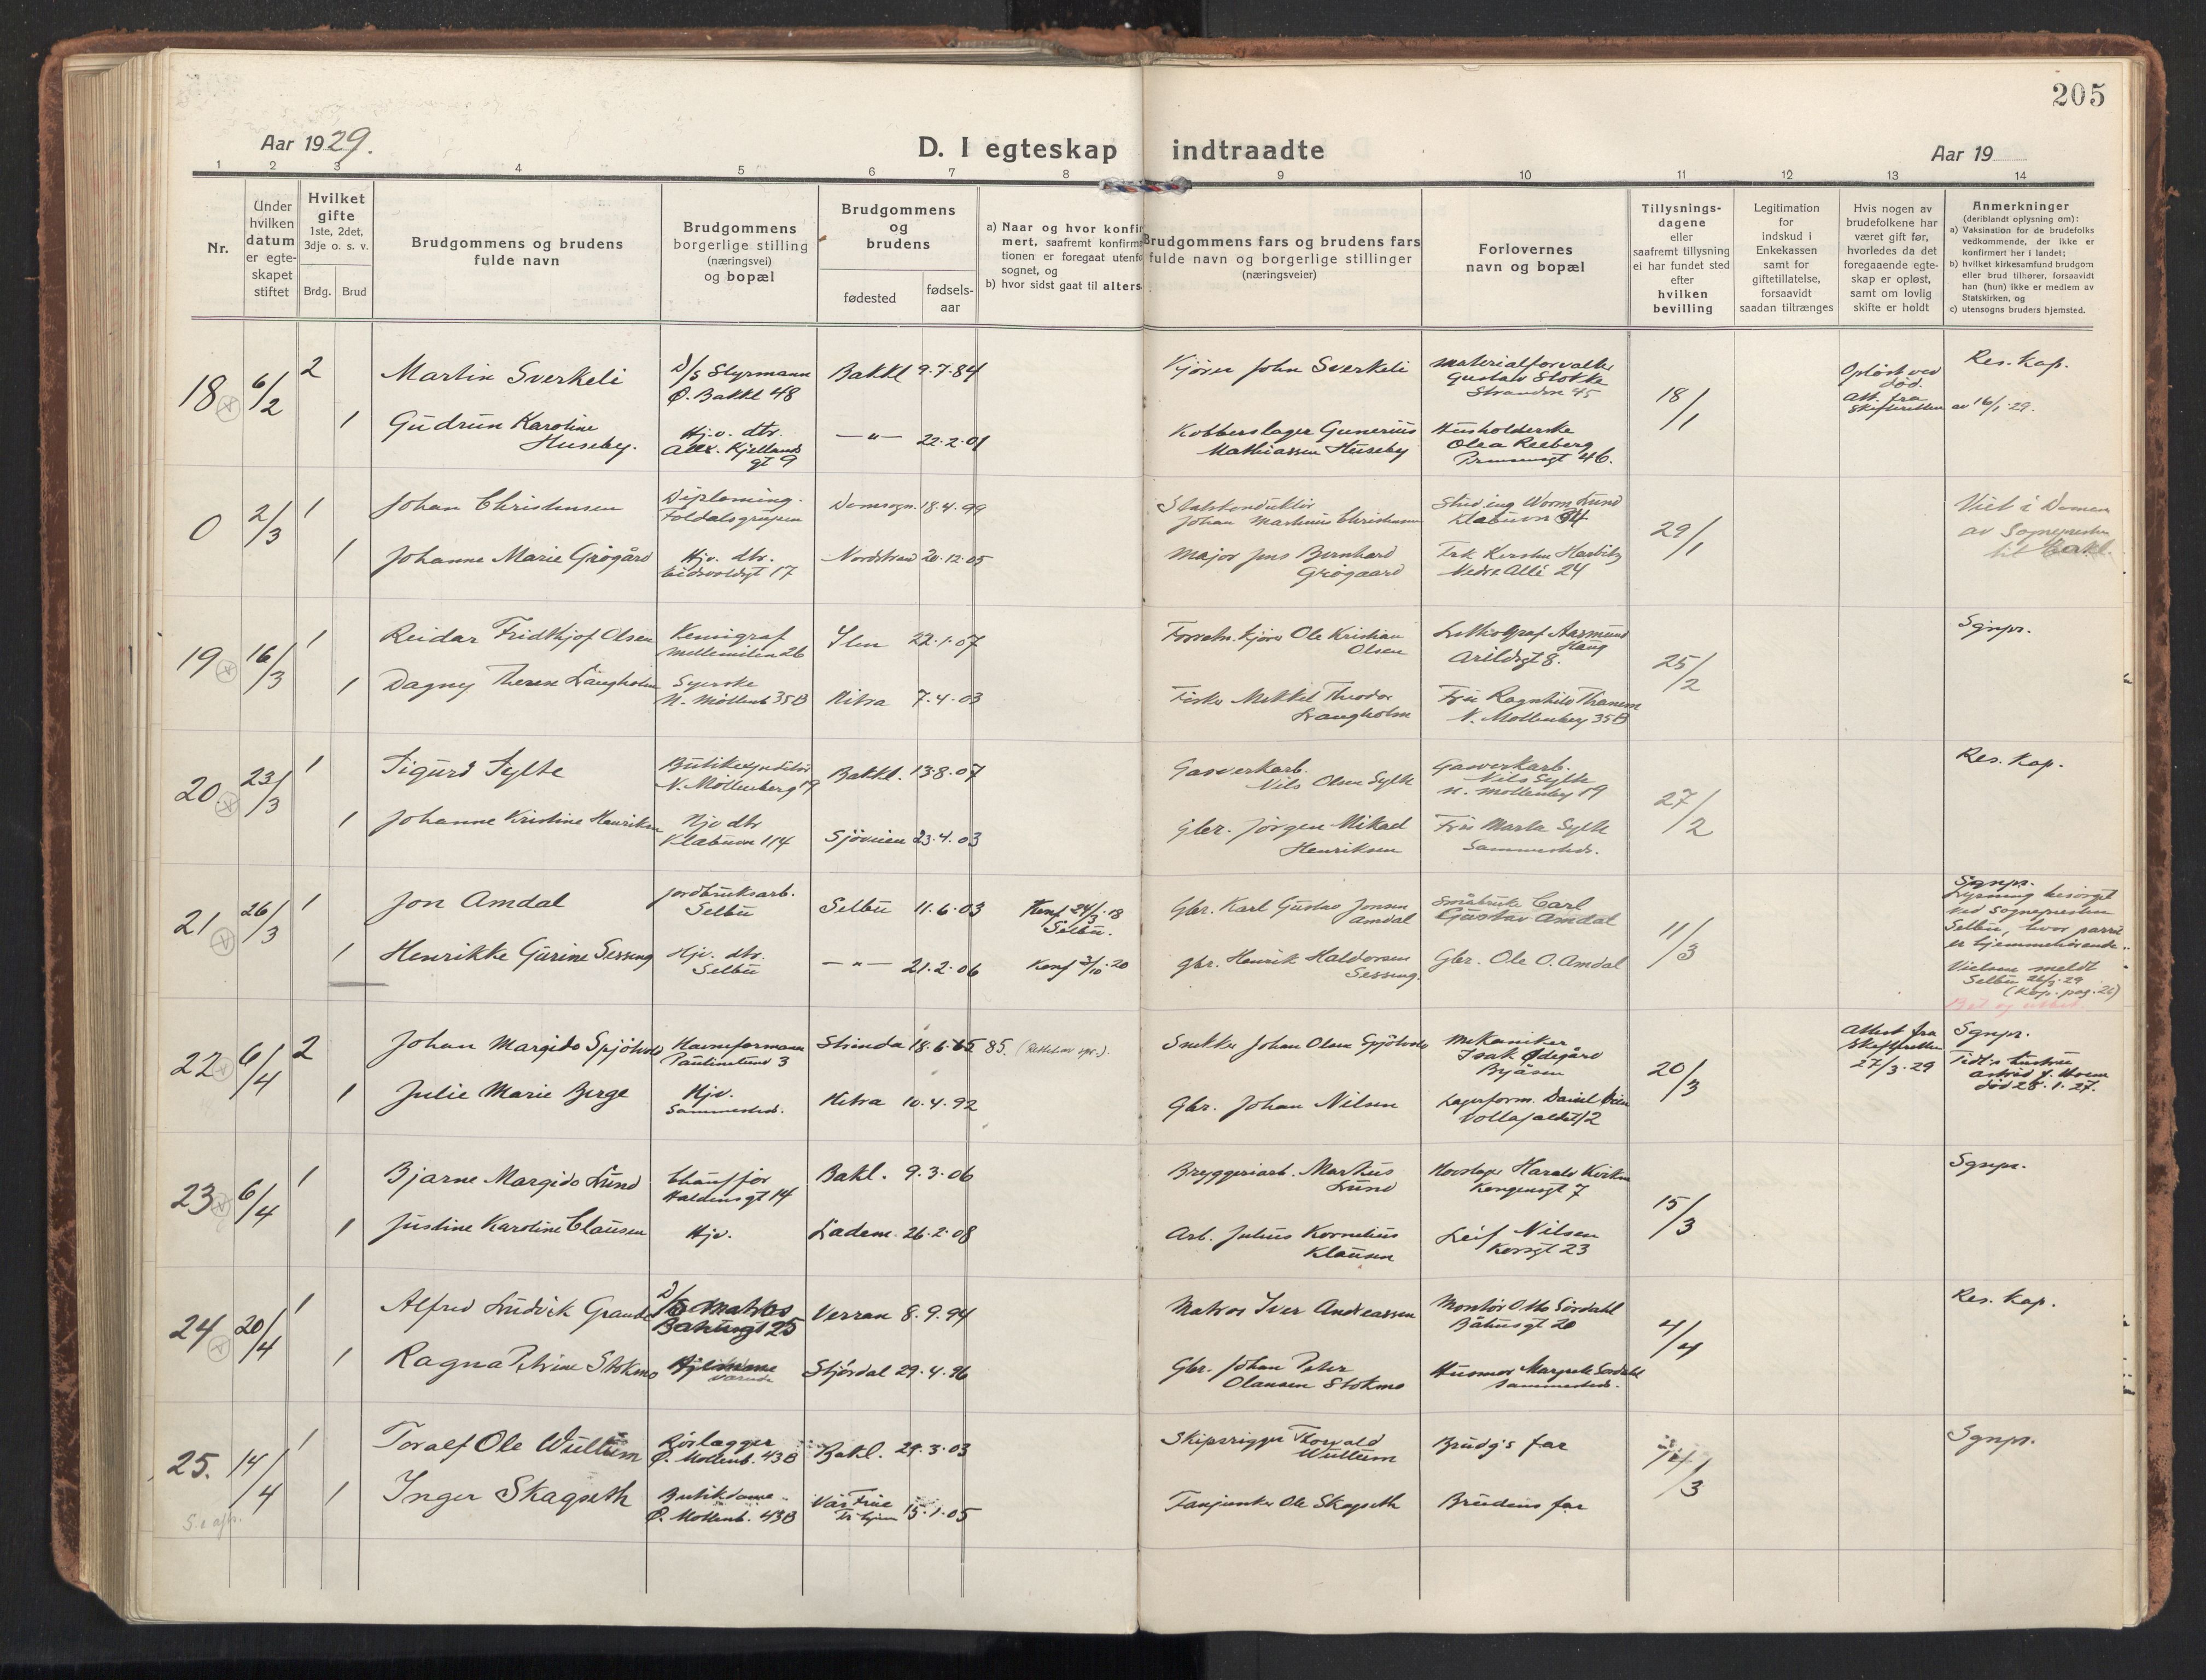 205
Aar 1929.
D. I egteskap indtraadte
Aar 19
1 2 3 4 5 6 7 8 9 10 11 12 13 14
Nr.
Under
hvilken
datum
er egte-
skapet
stiftet
Hvilket
gifte
1ste, 2det,
3dje o. s. v.
Brdg. Brud
Brudgommens og brudens
fulde navn
Brudgommens
borgerlige stilling
(næringsvei)
og bopæl
Brudgommens
og
brudens
fødested
fødsels-
aar
a) Naar og hvor konfir
mert, saafremt konfirm
tionen er foregaat utenfo
sognet, og
b) hvor sidst gaat til alters
Brudgommens fars og brudens fars
fulde navn og borgerlige stillinger
(næringsveier)
Forlovernes
navn og bopæl
Tillysnings-
dagene
eller
saafremt tillysning
ei har fundet sted
efter
hvilken
bevilling
Legitimation
for
indskud i
Enkekassen
samt for
giftetillatelse,
forsaavidt
saadan tiltrænges
Hvis nogen av
brudefolkene har
været gift før,
hvorledes da det
foregaaende egte-
skap er opløst,
samt om lovlig
skifte er holdt
Anmerkninger
(deriblandt oplysning om):
a) Vaksination for de brudefolks
vedkommende, der ikke er
konfirmert her i landet;
b) hvilket kirkesamfund brudgom
eller brud tilhører, forsaavidt
han (hun) ikke er medlem av
Statskirken, og
c) utensogns bruders hjemsted.
18 6/2 2 Martin Sverkeli D/S Styrmann
Ø. Bakkl 48 Bakkl 9.7.84 Kjører John Sverkeli Materialforvalter
Gustav Stokke
Stranden 45 18/1 Opløst ved
død.
Att. fra
Skifteretten av 16/1.29. Res. Kap.
1 Gudrun Karoline
Huseby. Hj.v. dtr.
Alex. Kjellands
gt 9 — " — 22.2.01 Kobberslager Gunerius
Mathiassen Huseby Husholderske
Olea Reeberg
46.
0 2/3 1 Johan Christensen Diploming.
Foldalsgruben Domsogn. 18.4.99 Johan Martinus Christensen Stud ing Worm Lund 29/1 Viet i Domen
av Sognepresten
til Bakl.
1 Johanne Marie Grøgård Hjv. dtr.
Eidsvoldsgt 17 Nordstrand 20.12.05 Major Jens Bernhard
Grøgaard Frk Kersten Harbitz
Nedre Allé 24
19 16/3 1 Reidar Fridthjof Olsen Kemigraf
Mellemilen 26 Ilen 22.1.07 Forretn. kjører Ole Kristian
Olsen Litograf Aasmund
Haug
Arildsgt 8. 25/2 Sgnpr.
1 Dagny Therese Laugholm Syerske
N. Møllenb 35B Hitra 7.4.03 Fisker Mikkel Theodor
Laugholm Fru Ragnhild Thanem
N. Møllenberg 35B
20. 23/3 1 Sigurd Sylte Butikexpeditør
N. Møllenberg 19 Bakkl. 13.8.07 Gasverkarb.
Nils Olsen Sylte Gasverkarb.
Nils Sylte
N. Møllenberg 19 27/2 Res. Kap.
1 Johanne Kristine Henriksen Hjv dtr
Klæbuvn 114 Sjøveien 23.4.03 Gbr. Jørgen Mikal
Henriksen Fru Marta Sylte
Sammesteds.
21 26/3 1 Jon Amdal Jordbruksarb.
Selbu Selbu 11.6.03 Konf 24/3.18
Selbu. Gbr. Karl Gustav Jonsen
Amdal Småbruker Carl
Gustav Amdal 11/3 Sgnpr.
Lysning besørget
ved Sognepresten
Selbu, hvor parret
er hjemmehørende.
Vielsen meldt
Selbu 26/3.29
(Kop. pag. 26)
1 Henrikke Gurine Sesseng Hjv. dtr.
Selbu — " — 21.2.06 Konf 3/10.20 Gbr. Henrik Haldorsen
Sesseng. Gbr. Ole O. Amdal
22 6/4 2 Johan Margido Gjølvold Havneformann
Paulinelund 3 Strinda 18.6.65 85. Snekker Johan Olsen Gjølvold Mekaniker
Isak Ødegård
Byåsen 20/3 Attest fra
Skifteretten
27/3.29 Sgnpr.
Tidl.s hustru
død 28.1.27.
1 Julie Marie Berge Hjv.
Sammesteds. Hitra 10.4.92 Gbr. Johan Nilsen Lagerform. Daniel
Vollafaldet 12
23 6/4 1 Bjarne Margido Lund Chauffør
Haldensgt 14 Bakl. 9.3.06 Bryggeriarb. Markus
Lund Hovslager Harald
Kongensgt 7 15/3 Sgnpr.
1 Justine Karoline Clausen Hjv. Ladem. 26.2.08 Arb. Julius Kornelius
Klausen Leif Nilsen
Korsgt 23
24 20/4 1 Alfred Ludvik Grande D/S Matros
Båhusgt 25 Verran 8.9.94 Matros Iver Andreassen Montør Otto Sördahl
Båhusgt 20 4/4 Res. Kap.
1 Ragna Petrine Stokmo Hjemme
værende Stjørdal 29.4.96 Gbr. Johan Peter
Olausen Stokmo Husmor Margrete Sördahl
Sammesteds.
25. 14/4 1 Toralf Ole Wullum Rørlægger
Ø. Møllenb. 43B Bakl. 29.3.03 Skipsrigger Thorvald
Wullum Brudg's far /3 Sgnpr.
1 Inger Skagseth Butikdame
Ø. Møllenb. 43B Vår Frue
Tr.hjem 15.1.05 Fanejunker Ole Skagseth Brudens far